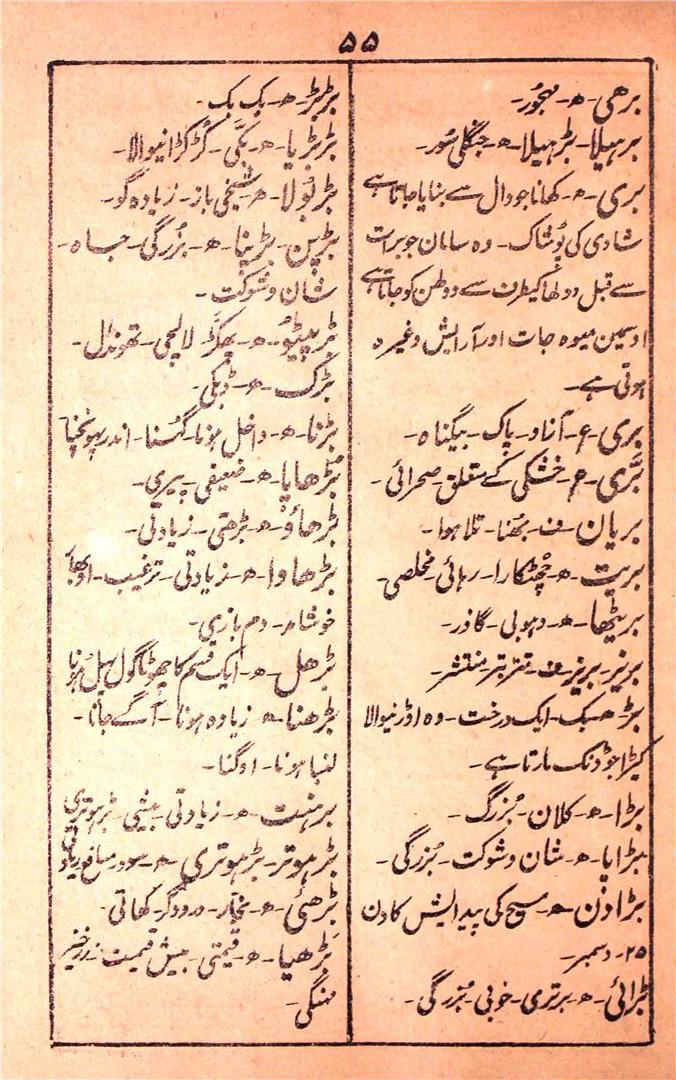 ۵۵
برھی - ھ - مہجُور -
برہیلا - بڑہیلا - ھ - جنگلی سُور -
بری - ھ - کھانا جو دال سے بنایا جاتا ہے
شادی کی پُوشاک - وہ سامان جو برات
سے قبل دولھا کیطرف سے دولھن کو جاتا ہے
اوسمین میوہ جات اور آرایش وغیرہ
ہوتی ہے -
بری - ع - آزاد - پاک - بیگناہ -
بَرّی - ع - خشکی کے متعلق - صحرائی -
بریان - ف - بھُنا - تلا ہوا -
بریت - ھ - چھٹکارا - رہائی - مخلصی -
بریٹھا - ھ - دہوبی - گاذر -
بریز - بریز - ف - تتر بتر - منتشر -
بڑ - ھ - بک - ایک درخت - وہ اوڑنیوالا
کیڑا جو ڈنک مارتا ہے -
بڑا - ھ - کلان - بُزرگ -
بڑاپا - ھ - شان و شوکت - بُزرگی -
بڑا دِن - ھ - مسیح کی پیدایش کا دن
۲۵ - دسمبر -
بڑائی - ھ - برتری - خوبی - بُزرگی -
بڑبڑ - ھ - بک بک -
بڑبڑیا - ھ - بکّی - کُڑکڑانیوالا -
بڑبُولا - ھ - شیخی باز - زیادہ گو -
بڑپن - بڑپنا - ھ - بُزرگی - جاہ -
شان و شوکت -
بڑپیٹُو - ھ - پھکّڑ لالچی - تھوندل -
بڑک - ھ - ڈبکی -
بڑنا - ھ - داخل ہونا - گھُسنا - اندر پہونچنا
بُڑھاپا - ھ - ضعیفی - پیری -
بڑھاؤ - ھ - بڑھتی - زیادتی -
بڑھاوا - ھ - زیادتی - ترغیب - اوبھا
خوشامد - دم بازی -
بڑھل - ھ - ایک قسم کا چھوٹا گول پہل ہونا
بڑھنا - ھ - زیادہ ہونا - آگے جانا -
لنبا ہونا - اوگنا -
برہنت - ھ - زیادتی - بیشی - بڑہوتری
بڑہوتر - بڑہوتری - ھ - سود - منافع - زیادتی
بڑھئی - ھ - نجّار - درودگر - کھاتی -
بَڑھیا - ھ - قیمتی - بیش قیمت - زرخیز
مہنگی -